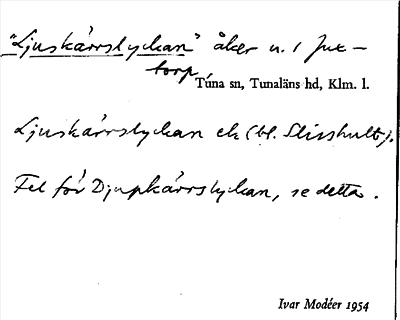 "Ljuskärrslyckan" åker n. 1 Jux-
torp
Tuna sn, Tunaläns hd, Klm. l.
Ljuskärrslyckan ek (bl. Slisshult).
Fel för Djupkärrslyckan, se detta.
Ivar Modéer 1954